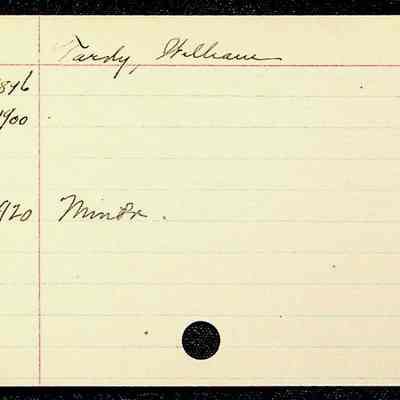 Tardy, William
1876
1900
1920 Minor.